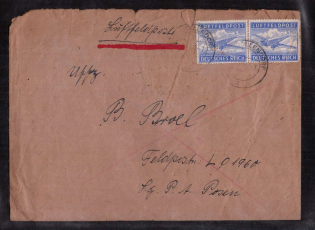 Luftfeldpost
LUFTFELDPOST LUFTFELDPOST
DEUTSCHES REICH DEUTSCHES REICH
Uffz.
B. Broel
Feldpost L 91960
Lg P A Posen